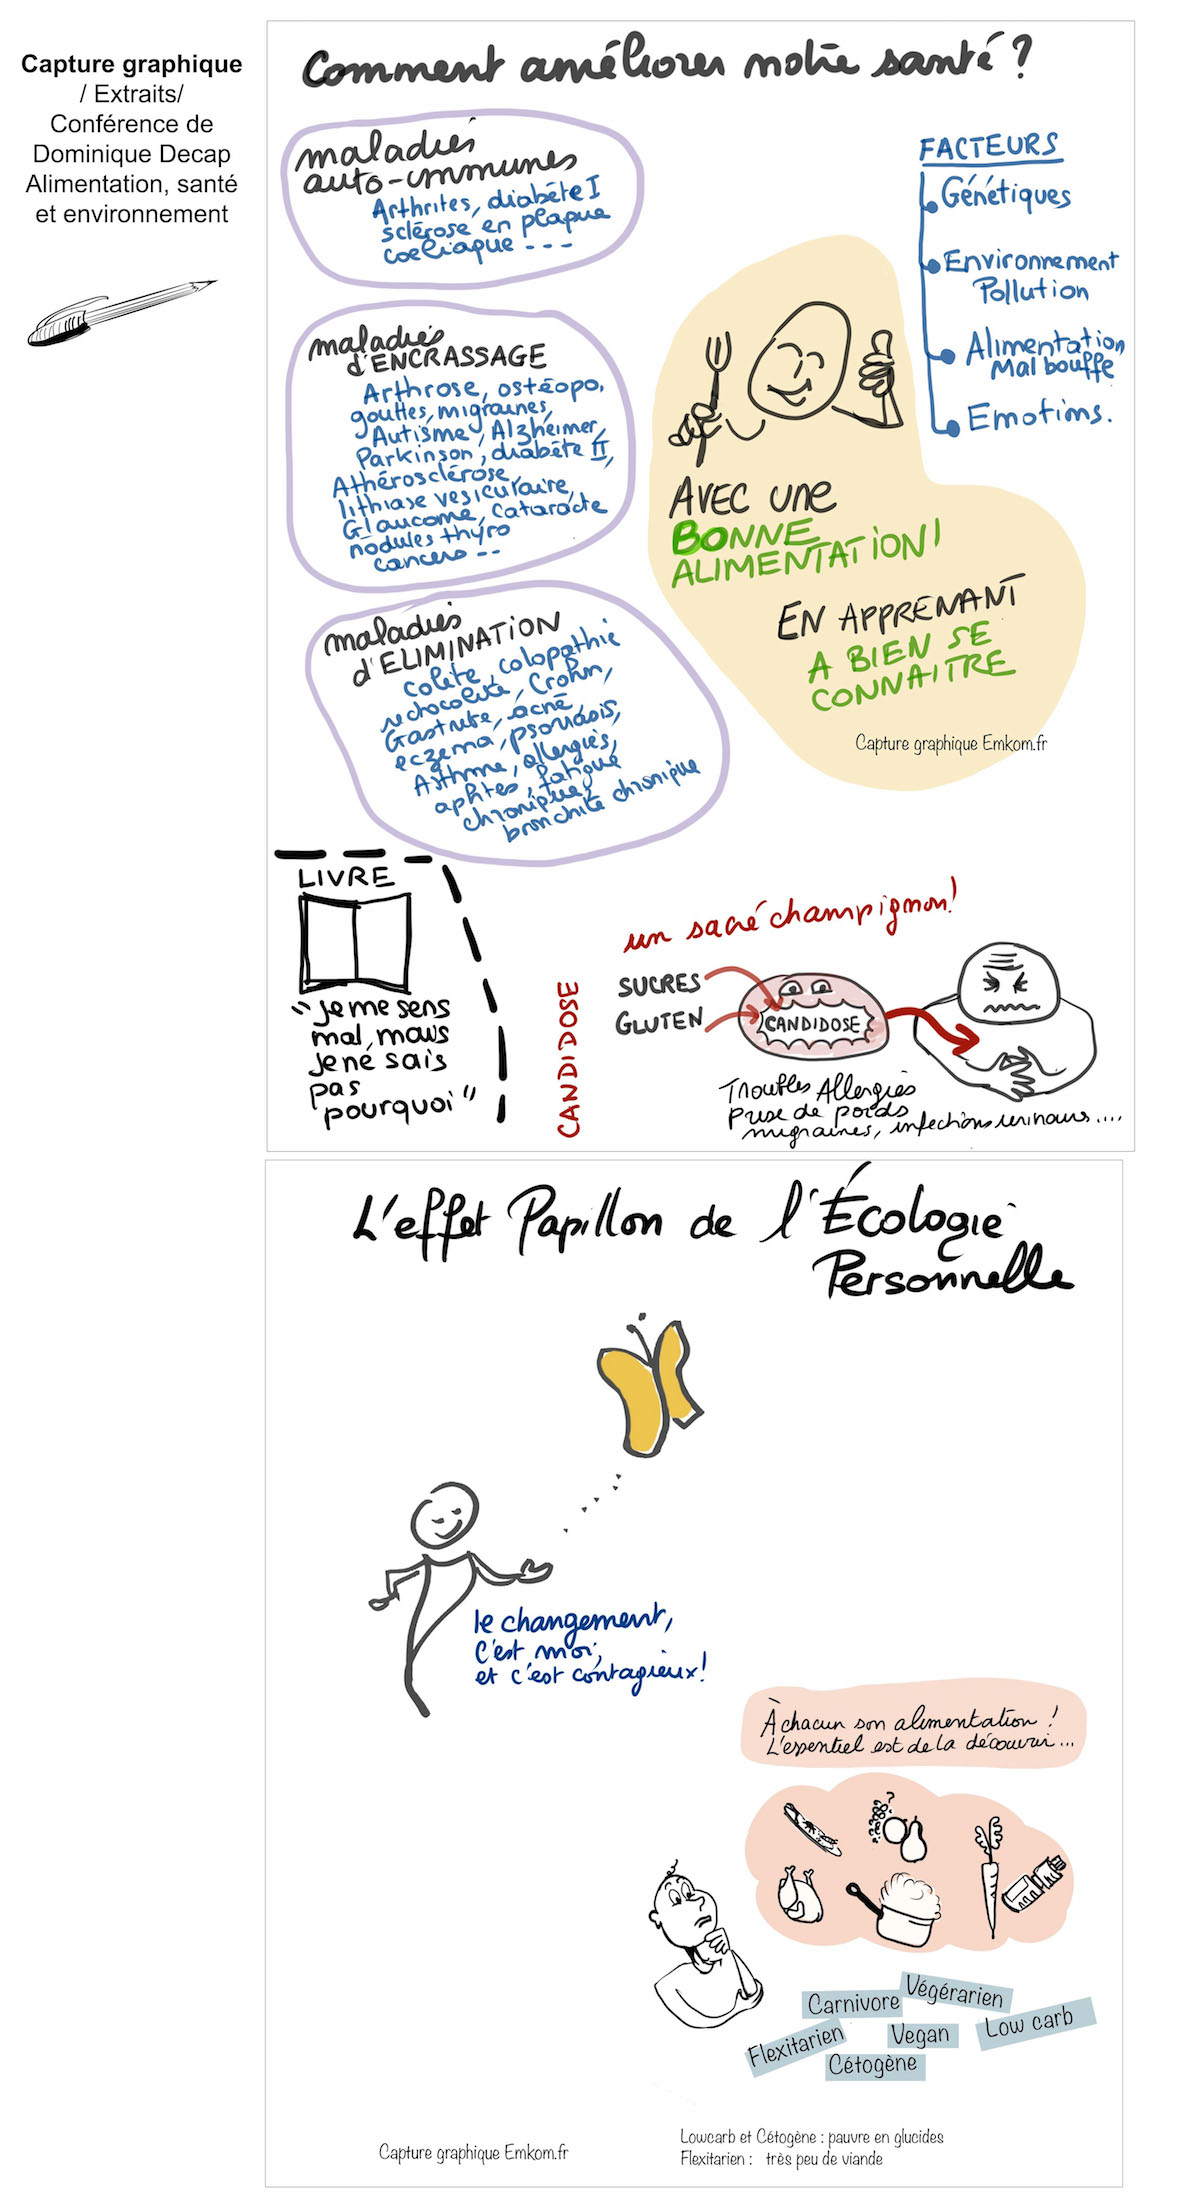 Capture graphique
/ Extraits/
Conférence de
Dominique Decap
Alimentation, santé
et environnement
Comment améliorer notre santé ?
maladies
auto-immunes
Arthrites, diabète I
sclérose en plaque
coeliaque - - -
maladies
d'ENCRASSAGE
Arthrose, ostéopo,
gouttes, migraines,
Autisme, Alzheimer,
Parkinson, diabète II,
Athérosclérose,
lithiase vésiculaire,
Glaucome, Cataracte
nodules thyro
cancers --
maladies
d'ELIMINATION
colite, colopathie
rectocolite, Crohn,
Gastrite, acné,
eczema, psoriasis,
Asthme, allergies,
aphtes, fatigue
chronique,
bronchite chronique
FACTEURS
Génétiques
Environnement
Pollution
Alimentation
Mal bouffe
Emotions.
AVEC UNE
BONNE
ALIMENTATION!
EN APPRENANT
A BIEN SE
CONNAITRE
Capture graphique Emkom.fr
LIVRE
"Je me sens
mal, mais
je ne sais
pas
pourquoi"
CANDIDOSE
un sacré champignon!
SUCRES
GLUTEN
CANDIDOSE
Troubles Allergies
prise de poids
migraines, infections urinaires....
L'effet Papillon de l'Écologie
Personnelle
le changement,
c'est moi,
et c'est contagieux!
À chacun son alimentation !
L'essentiel est de la découvrir...
Carnivore
Végérarien
Flexitarien
Vegan
Low carb
Cétogène
Capture graphique Emkom.fr
Lowcarb et Cétogène : pauvre en glucides
Flexitarien : très peu de viande